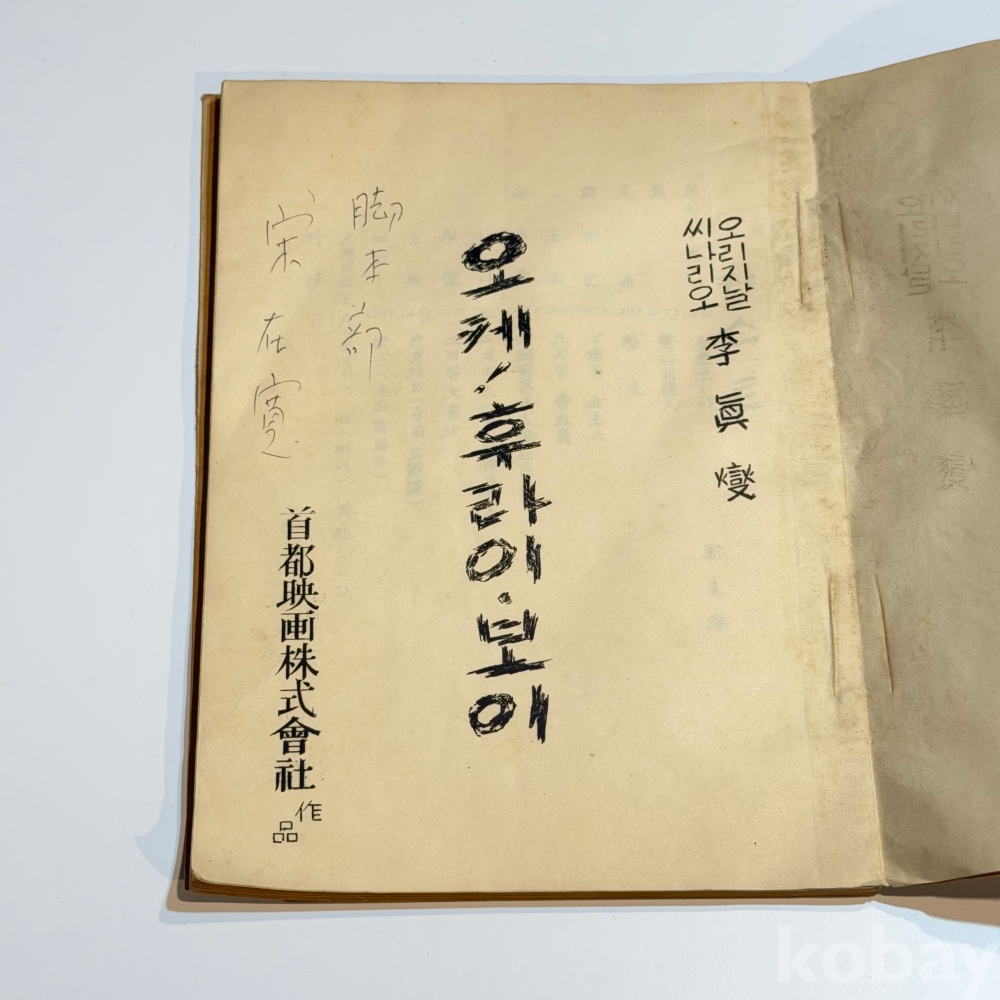 오리지날
씨나리오
李眞燮
오케!휴라이·보이
脚本部
宋在寛
首都映画株式會社
作品
kobay